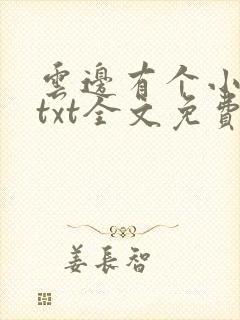 雲邊有个小
txt全文免費
姜長智